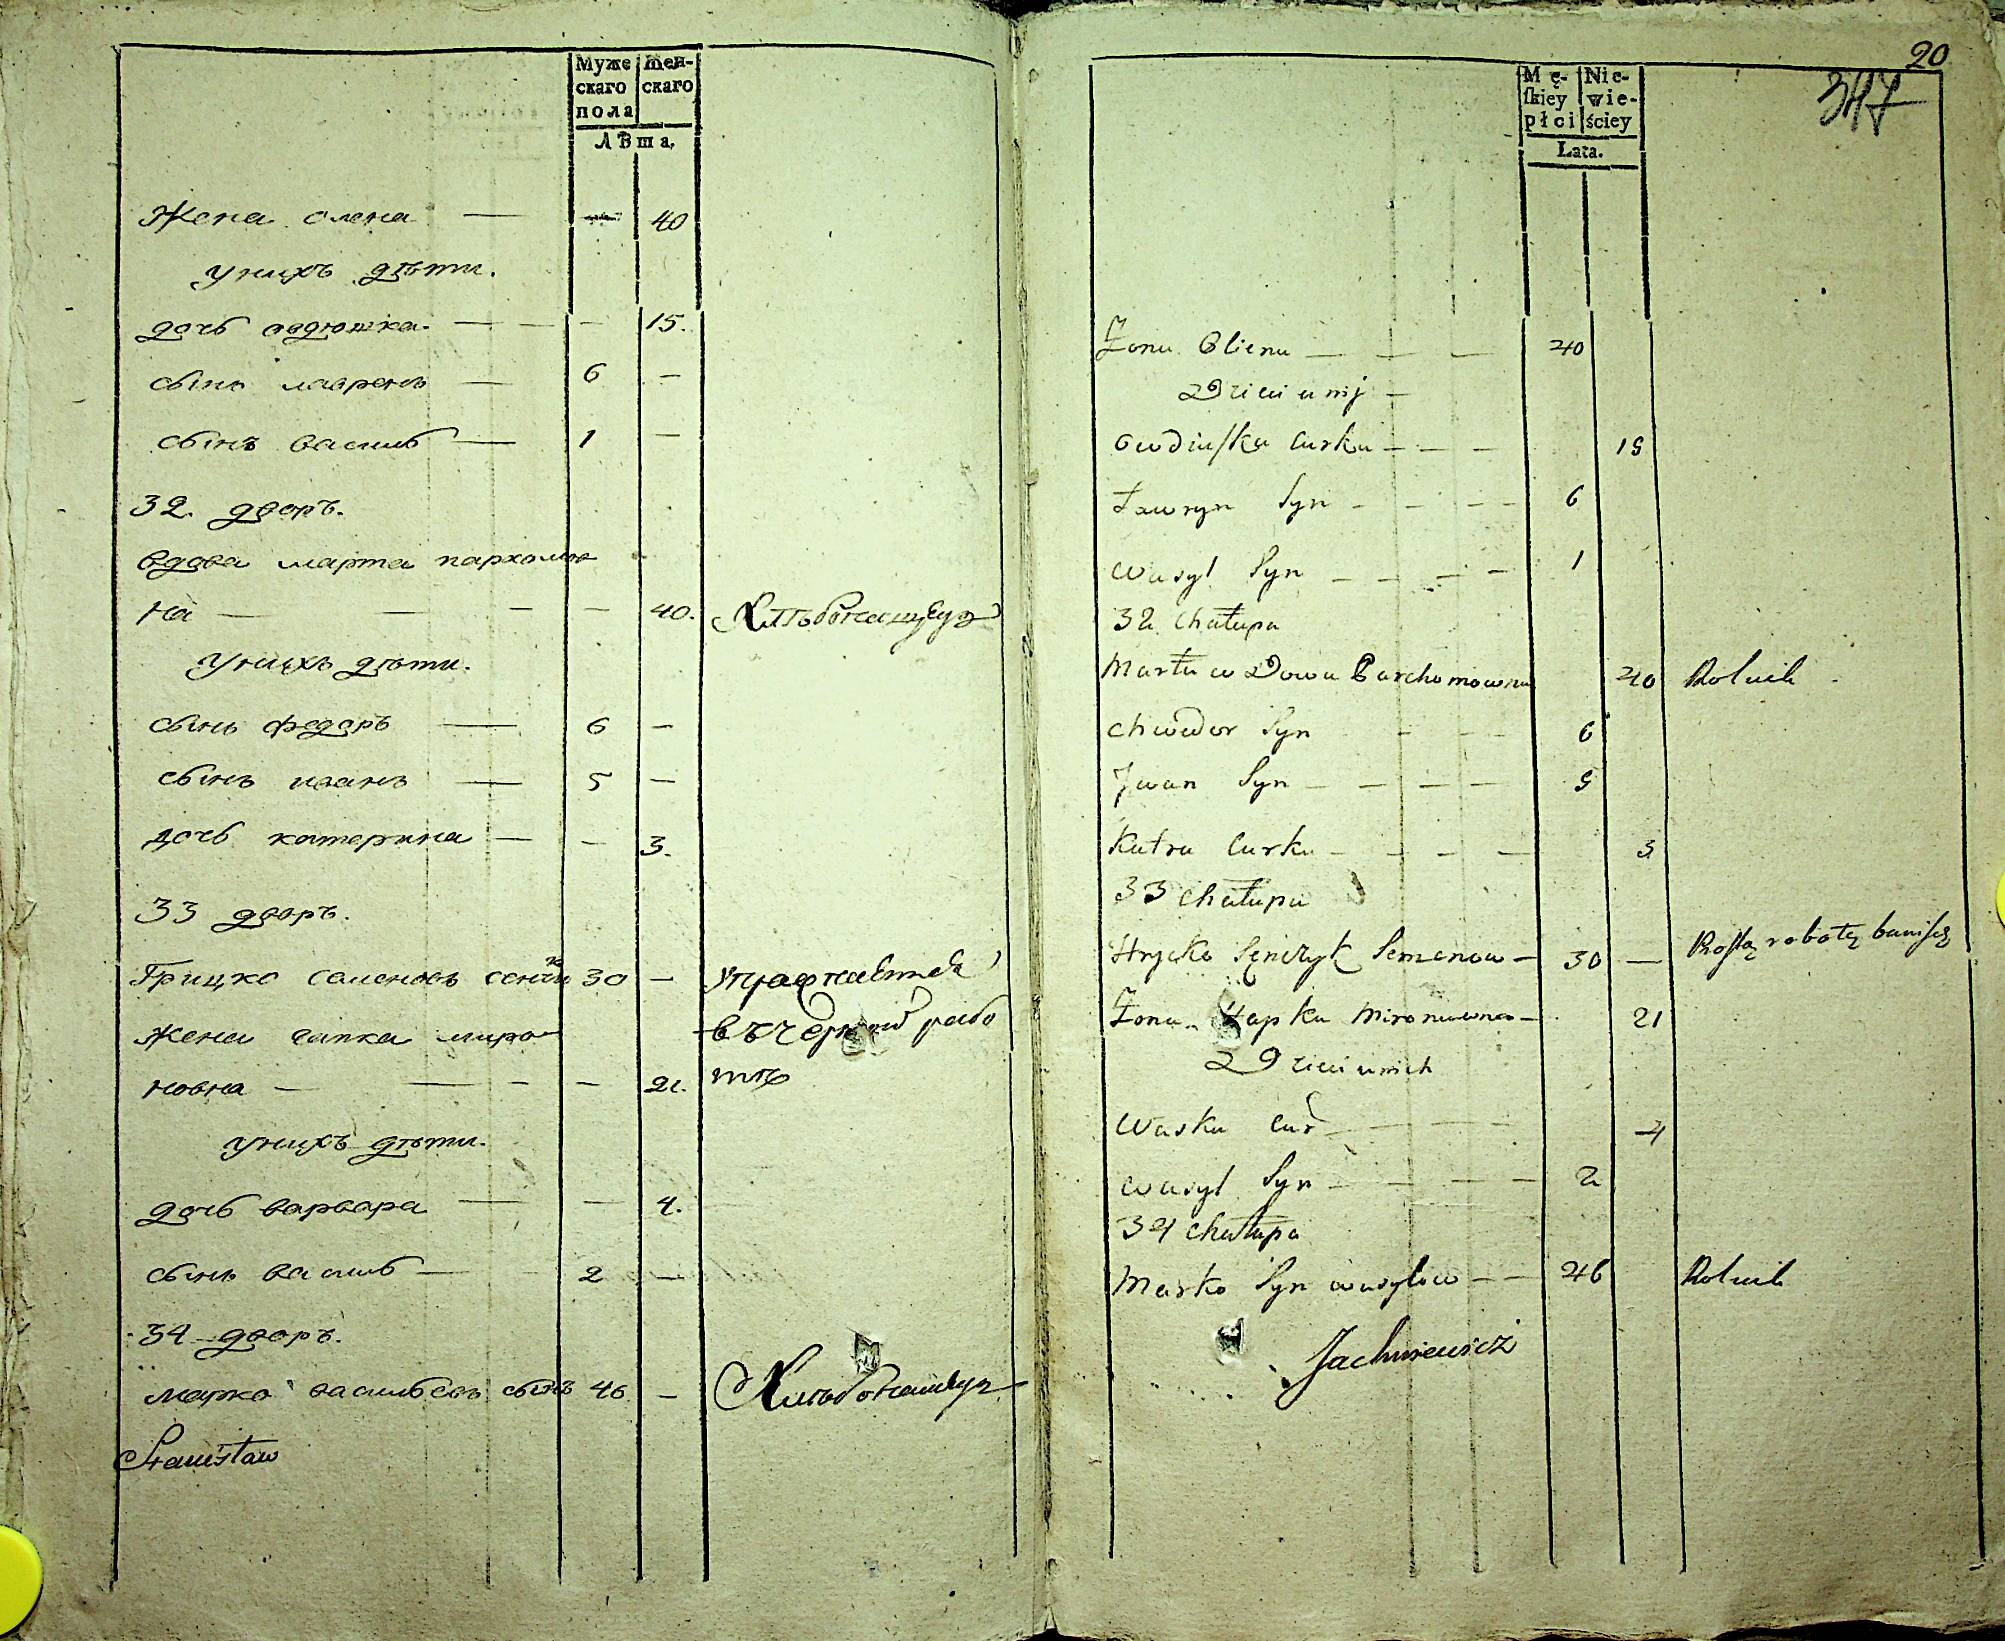 Муже
скаго
пола
Жен-
скаго
лѣта,
Жена олена — — 40
унихъ дѣти.
дочь овдюшка. — — — 15.
сынъ лавренъ — 6 —
сынъ василь — 1 —
32. дворъ.
вдова марта пархомов
на — — — — 40. Хлѣбопашецъ
унихъ дѣти.
сынъ федоръ — 6 —
сынъ иванъ — 5 —
дочь катерина — — 3.
33 дворъ.
Грицко семеновъ сенчик 30 — упражняется
жена гапка миро въ черной рабо
новна — — — — 21. тѣ
унихъ дѣти.
дочь варвара — — 4.
сынъ василь — 2 —
34 дворъ.
марко васильевъ сынъ 46 — Хлѣбопашецъ
Stanisław
20
347
Mę-
skiey
płci
Nie-
wie-
ściey
Lata.
Żona Oliena — — — 40
Dzieci u nij —
Owdiuszka Curka — — — 15
Ławryn Syn — — — — 6
Wasyl Syn — — — — 1
32 Chałupa
Marta wDowa Parchomowna 40 Rolnik
Chwedor Syn — — — 6
Jwan Syn — — — — 5
Katra Curka — — — — 3
33 Chałupa
Hrycko Senczyk Semenow — 30 — Rostą robotą bawiscę
Żona Hapka Mironowna — 21
Dzieci u nich
Waska Cur — — — 4
Wasyl Syn — — — — 2
34 Chałupa
Marko Syn wasylow — — 46 Rolnik
Jachniewicz